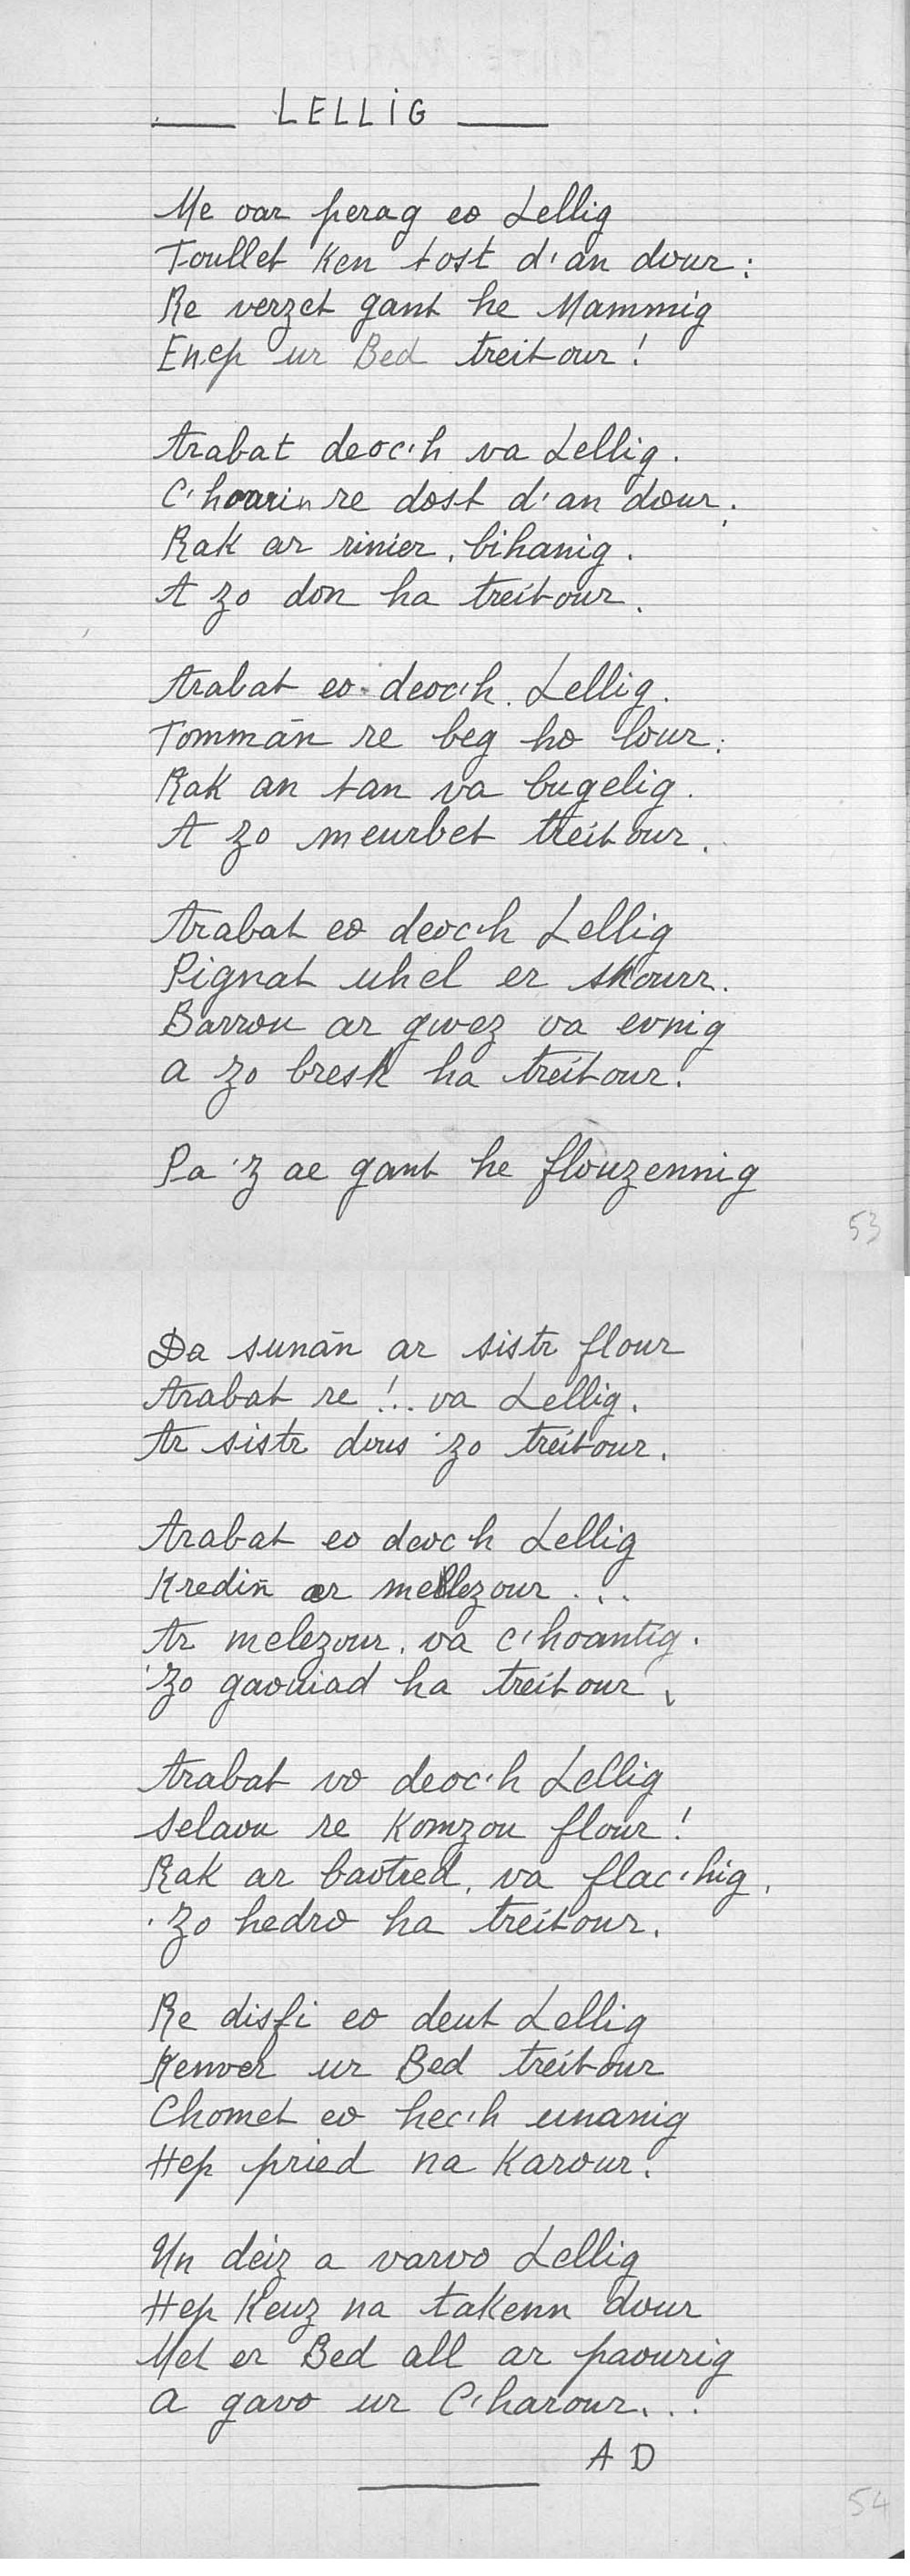 LELLIG
Me oar perag eo Lellig
Toullet Ken tost d'an dour :
Re verzet gant he Mammig
Enep ur Bed treitour !
Arabat deoc'h va Lellig.
C'hoarin re dost d'an dour.
Rak ar rinier, bihanig.
A zo don ha treitour.
Arabat eo deoc'h. Lellig.
Tommañ re beg ho lour.
Rak an tan va bugelig.
A zo meurbet treitour.
Arabat eo deoc'h Lellig
Pignat uhel er skourr.
Barrou ar gwez va evnig
a zo bresk ha treitour.
Pa 'z ae gant he flouzennig
53
Da sunañ ar sistr flour
Arabat re !.. va Lellig.
Ar sistr dous 'zo treitour.
Arabat eo deoc'h Lellig
Krediñ er mellezour...
Ar melezour, va c'hoantig.
'Zo gaouiad ha treitour.
Arabat vo deoc'h Lellig
Selaou re Komzou flour !
Rak ar baotred, va flac'hig.
'Zo hedro ha treitour.
Re disfi eo deut Lellig
Kenver ur Bed treitour
Chomet eo hec'h unanig
Hep pried na Karour.
Un deiz a varvo Lellig
Hep Keuz na takenn dour
Met er Bed all ar paourig
a gavo ur C'harour...
A D
54